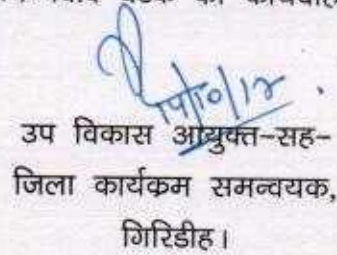 19/10/12
उप विकास आयुक्त-सह-
जिला कार्यक्रम समन्वयक,
गिरिडीह।